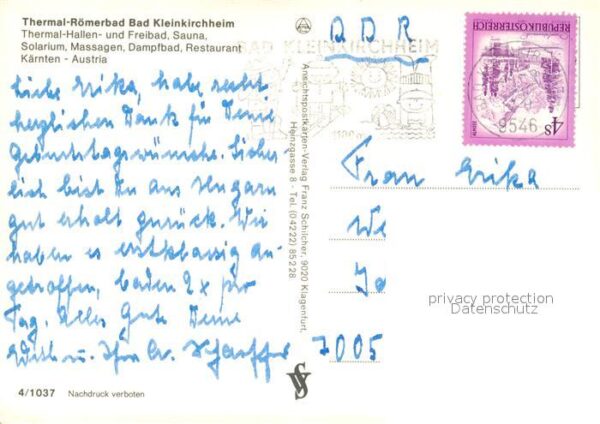 Thermal-Römerbad Bad Kleinkirchheim
Thermal-Hallen- und Freibad, Sauna,
Solarium, Massagen, Dampfbad, Restaurant
Kärnten - Austria
Liebe Erika, habe recht
herzlichen Dank für Deine
Geburtstagswünsche. Sicher-
lich bist Du aus Ungarn
gut erholt zurück. Wir
haben es erstklassig an-
getroffen, baden 2x pro
Tag. Alles Gute Deine
Edith u.
4/1037 Nachdruck verboten
Ansichtspostkarten-Verlag Franz Schilcher, 9020 Klagenfurt,
Heinzgasse 8 - Tel. (04222) 85228
DDR
BAD KLEINKIRCHHEIM
REPUBLIK ÖSTERREICH
4S
9546
Frau Erika
We
Ja
7005
privacy protection
Datenschutz